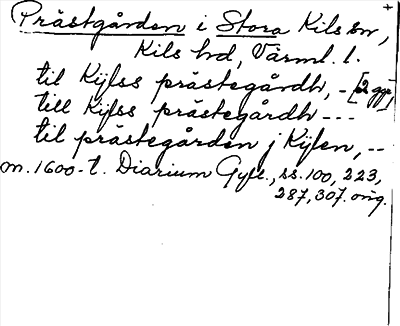 Prästgården i Stora Kils sn,
Kils hd, Värml. l.
til Kijlss prästegårdh, - [2 ggr]
till Kijlss prästegårdh ---
til prästegården j Kijlen, --
m. 1600-t. Diarium Gyll., ss. 100, 223,
287, 307. orig.